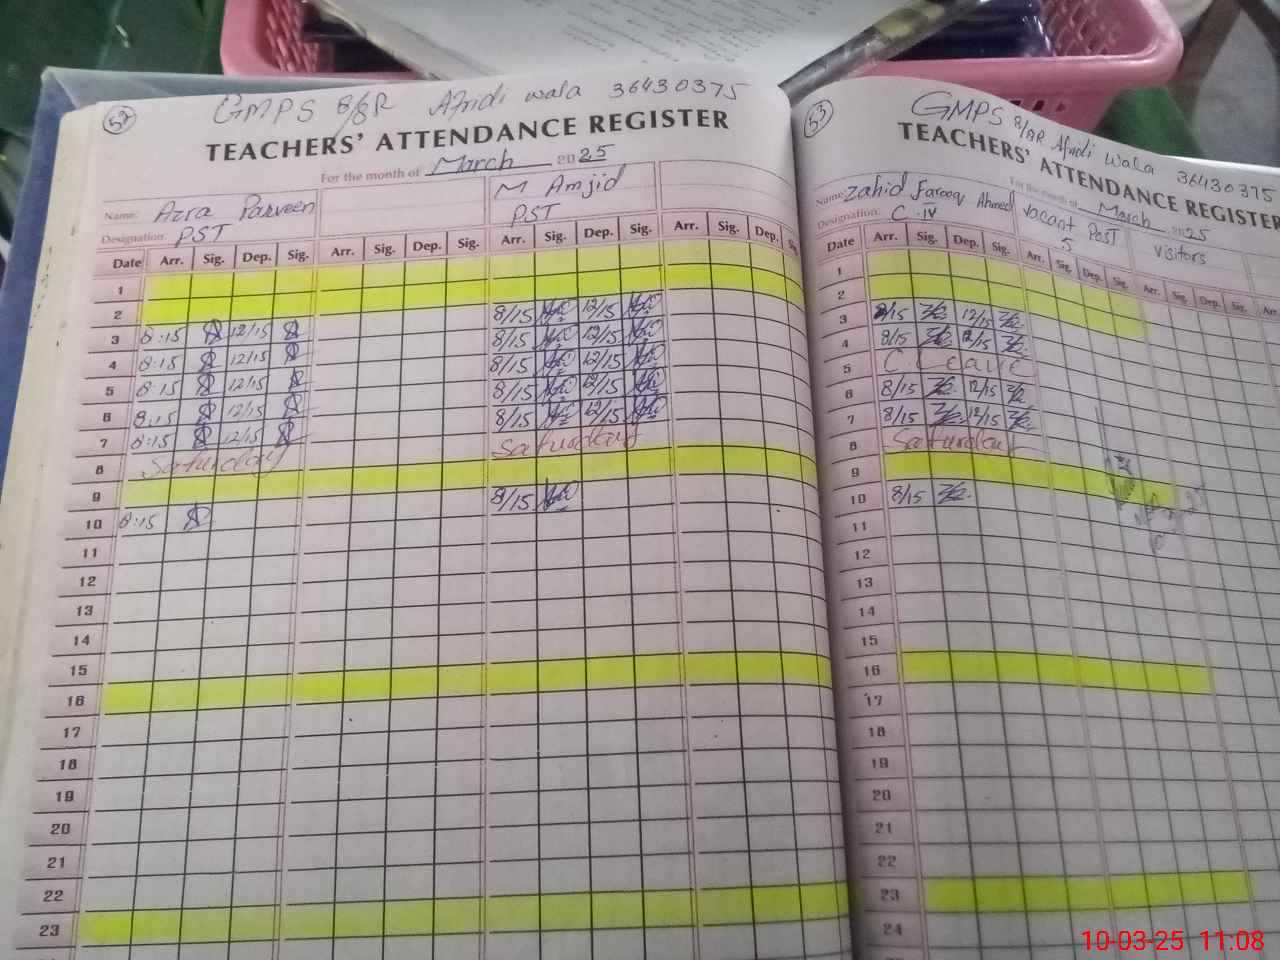 52
GMPS 8/8R Afridi wala 36430375
TEACHERS' ATTENDANCE REGISTER
For the month of March 2025
Name: Azra Parveen M Amjid
Designation: PST PST
Date Arr. Sig. Dep. Sig. Arr. Sig. Dep. Sig. Arr. Sig. Dep. Sig. Arr. Sig. Dep. Sig.
1
2
3 8:15 12/15 8/15 12/15
4 8:15 12/15 8/15 12/15
5 8:15 12/15 8/15 12/15
6 8:15 12/15 8/15 12/15
7 8:15 12/15 8/15 12/15
8 Saturday Saturday
9
10 8:15 8/15
11
12
13
14
15
16
17
18
19
20
21
22
23
53
GMPS 8/8R Afridi wala 36430375
TEACHERS' ATTENDANCE REGISTER
For the month of March 2025
Name: Zahid Farooq Ahmed Vacant Post Visitors
Designation: C.IV 5
Date Arr. Sig. Dep. Sig. Arr. Sig. Dep. Sig. Arr. Sig. Dep. Sig. Arr.
1
2
3 8/15 12/15
4 8/15 12/15
5 C.Leave
6 8/15 12/15
7 8/15 12/15
8 Saturday
9
10 8/15
11
12
13
14
15
16
17
18
19
20
21
22
23
24
10-03-25 11:08